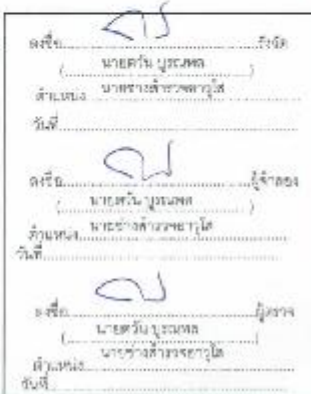 ลงชื่อ....................รังวัด
(นายตวัน บูรณพล)
ตำแหน่ง นายช่างสำรวจอาวุโส
วันที่....................
ลงชื่อ....................ผู้จำลอง
(นายตวัน บูรณพล)
ตำแหน่ง นายช่างสำรวจอาวุโส
วันที่....................
ลงชื่อ....................ผู้ตรวจ
(นายตวัน บูรณพล)
ตำแหน่ง นายช่างสำรวจอาวุโส
วันที่....................